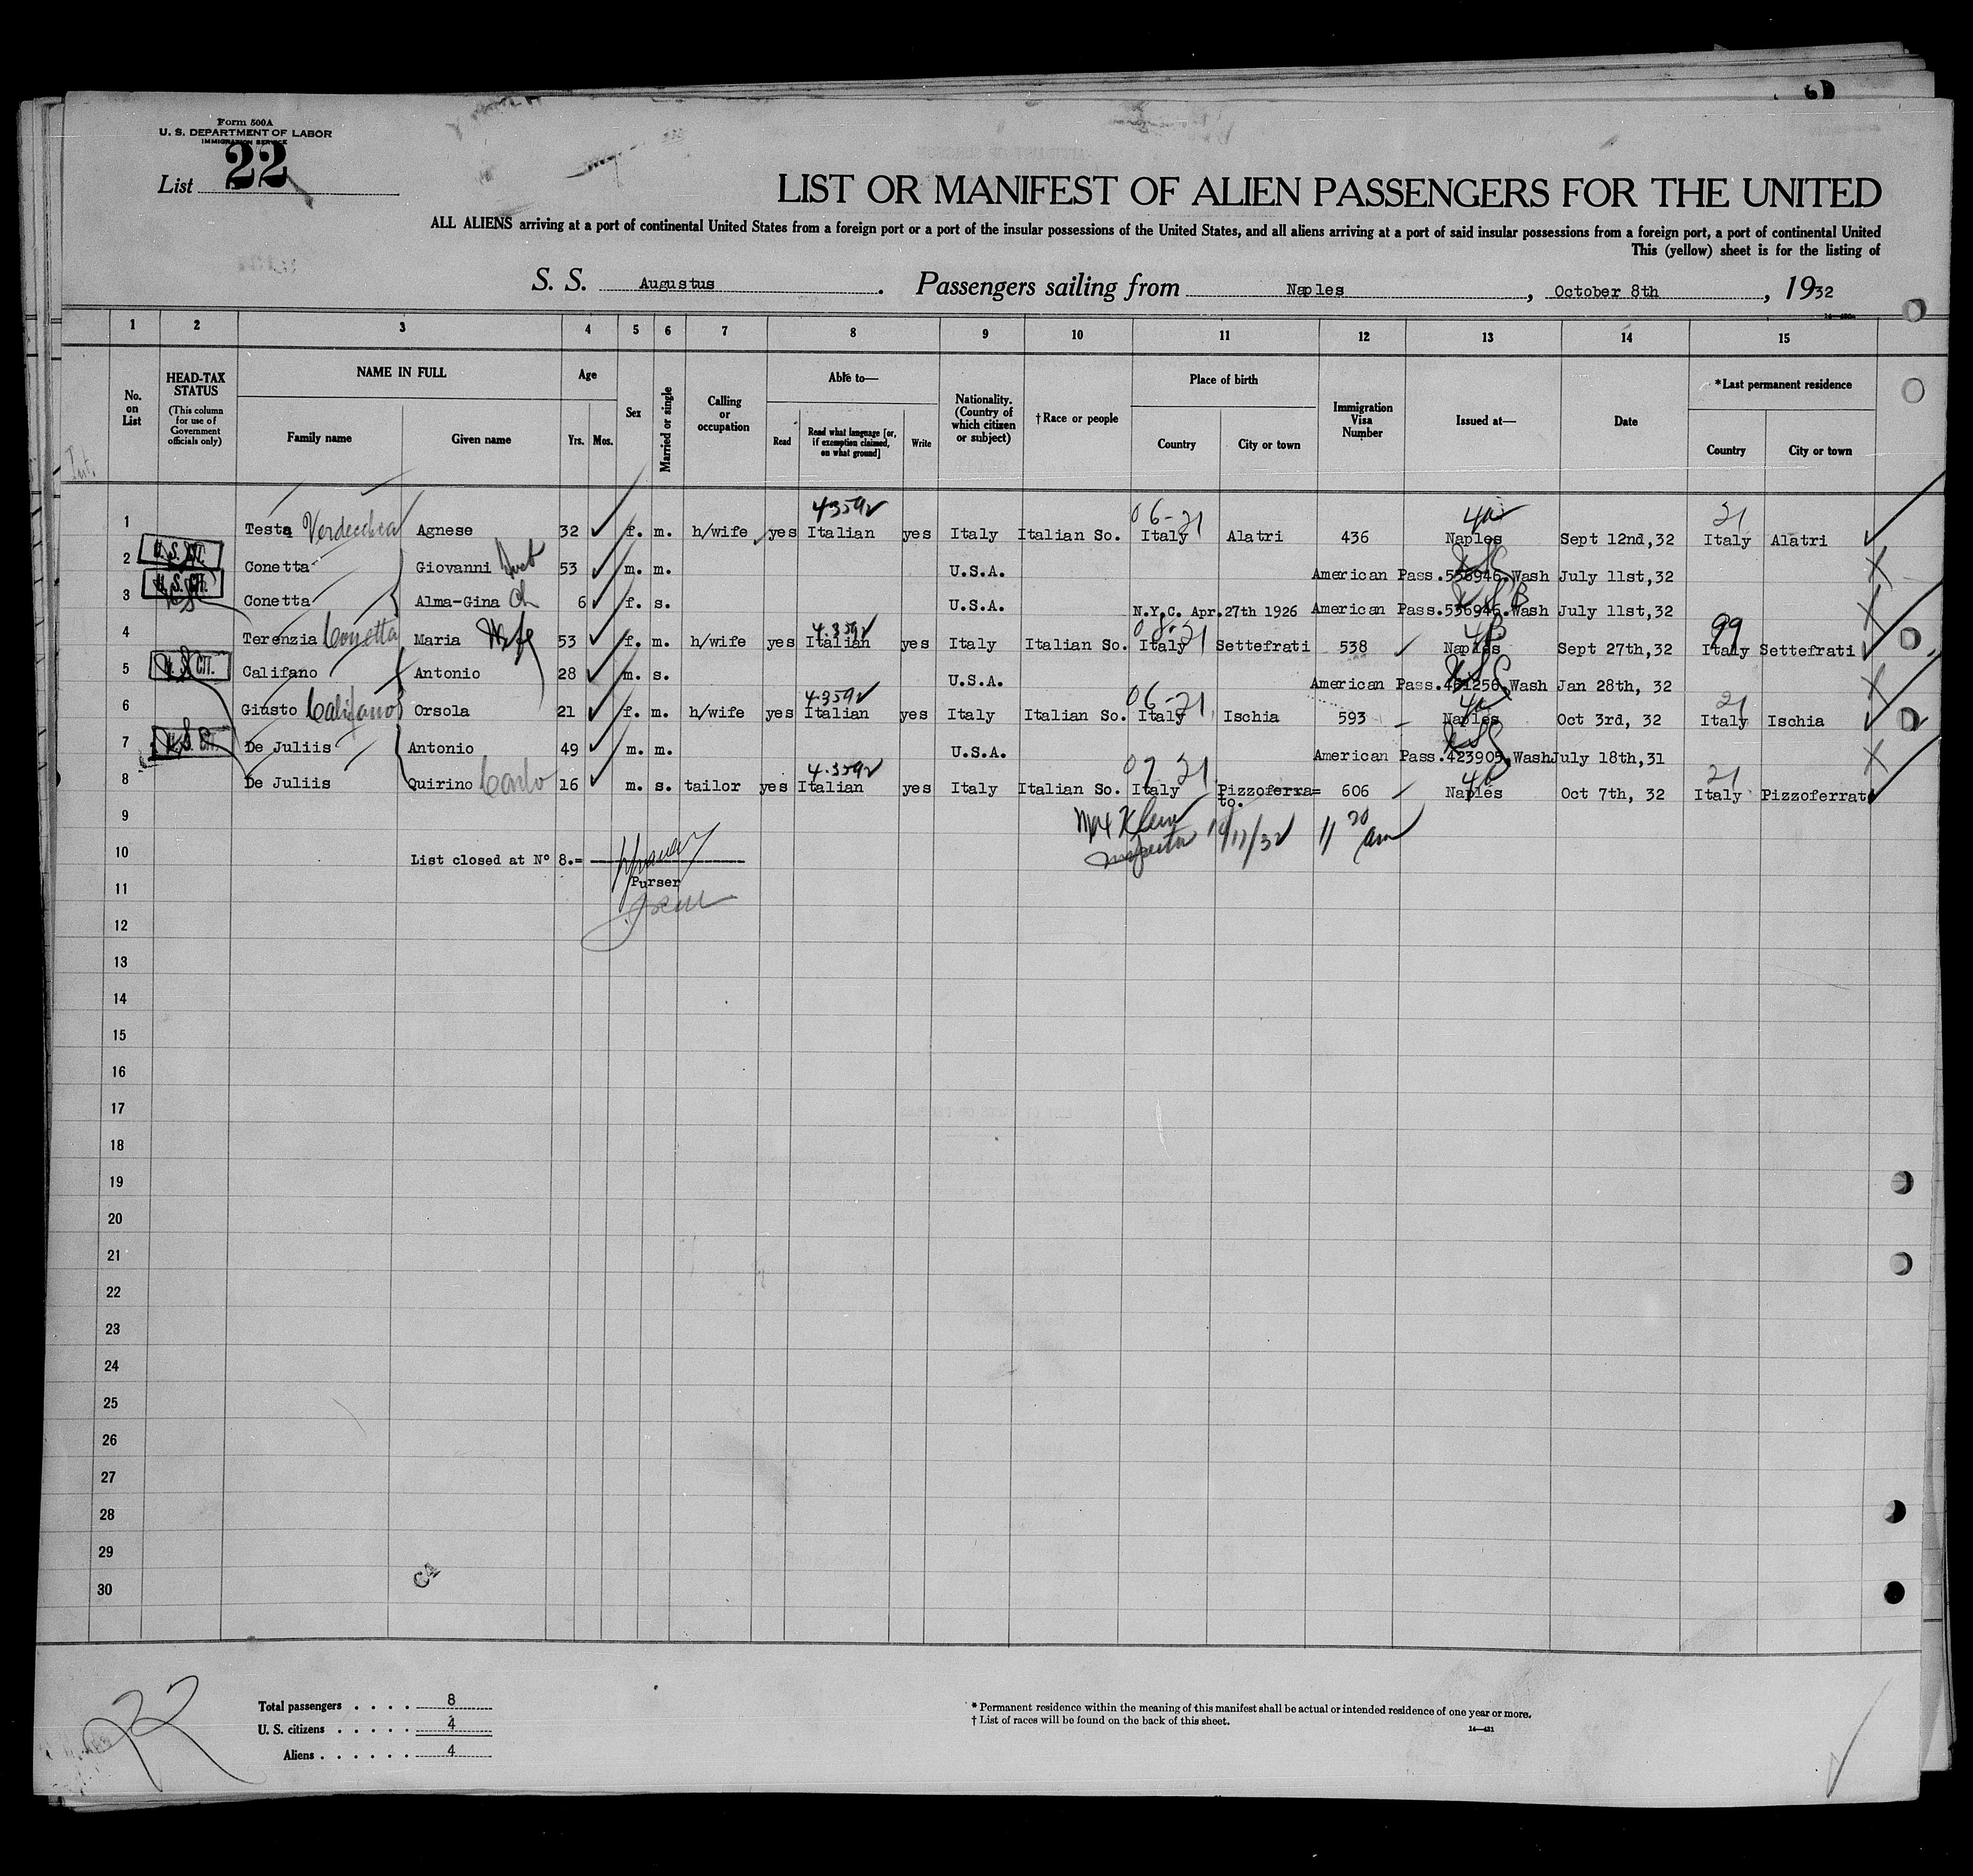 Form 500A
U. S. DEPARTMENT OF LABOR
IMMIGRATION SERVICE
List 22
LIST OR MANIFEST OF ALIEN PASSENGERS FOR THE UNITED
ALL ALIENS arriving at a port of continental United States from a foreign port or a port of the insular possessions of the United States, and all aliens arriving at a port of said insular possessions from a foreign port, a port of continental United
This (yellow) sheet is for the listing of
S. S. Augustus. Passengers sailing from Naples, October 8th, 1932
14—430a
1 2 3 4 5 6 7 8 9 10 11 12 13 14 15
No. on List
HEAD-TAX STATUS (This column for use of Government officials only)
NAME IN FULL Family name Given name
Age Yrs. Mos.
Sex
Married or single
Calling or occupation
Able to— Read Read what language [or, if exemption claimed, on what ground] Write
Nationality. (Country of which citizen or subject)
†Race or people
Place of birth Country City or town
Immigration Visa Number
Issued at—
Date
*Last permanent residence Country City or town
Int.
4-359 06-21 4a 21
1 Testa Verdecchia Agnese 32 f. m. h/wife yes Italian yes Italy Italian So. Italy Alatri 436 Naples Sept 12nd,32 Italy Alatri
2 U.S. CIT. Conetta Giovanni 53 m. m. U.S.A. American Pass.536946.Wash July 11st,32
3 U.S. CIT. Conetta Alma-Gina Ch 6 f. s. U.S.A. N.Y.C. Apr.27th 1926 American Pass.536946.Wash July 11st,32
4-359 99
4 Terenzia Conetta Maria Wife 53 f. m. h/wife yes Italian yes Italy Italian So. Italy Settefrati 538 Naples Sept 27th,32 Italy Settefrati
5 U.S. CIT. Califano Antonio 28 m. s. U.S.A. American Pass.461256.Wash Jan 28th, 32
4-359 06-21 21
6 Giusto Califano Orsola 21 f. m. h/wife yes Italian yes Italy Italian So. Italy Ischia 593 Naples Oct 3rd, 32 Italy Ischia
7 U.S. CIT. De Juliis Antonio 49 m. m. U.S.A. American Pass.423905.Wash July 18th,31
4-359 07 21 21
8 De Juliis Quirino Carlo 16 m. s. tailor yes Italian yes Italy Italian So. Italy Pizzoferra= to. 606 Naples Oct 7th, 32 Italy Pizzoferrato
9 Max Klein
Inspector 10/17/32 11 20 am
10 List closed at Nº 8.=
Purser
11
12
13
14
15
16
17
18
19
20
21
22
23
24
25
26
27
28
29
30
C4
22
Total passengers . . . . 8
U. S. citizens . . . . . 4
Aliens . . . . . . 4
* Permanent residence within the meaning of this manifest shall be actual or intended residence of one year or more.
† List of races will be found on the back of this sheet.
14—431